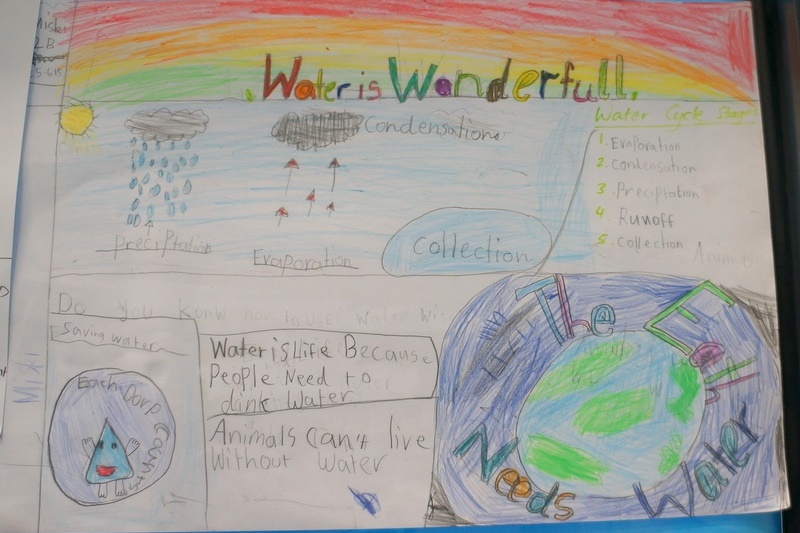 Miski
2B
Water is Wonderfull.
Water Cycle Stages
1. Evaporation
2. Condensation
3. Preciptation
4. Runoff
5. Collection
Animals
Condensation
Preciptation
Evaporation
Collection
Do you konw how to use water
Saving water
Each Dorp Counts
Water is Life Because
People Need to
dink Water
Animals Can't live
Without Water
The Earth
Needs Water
Miski